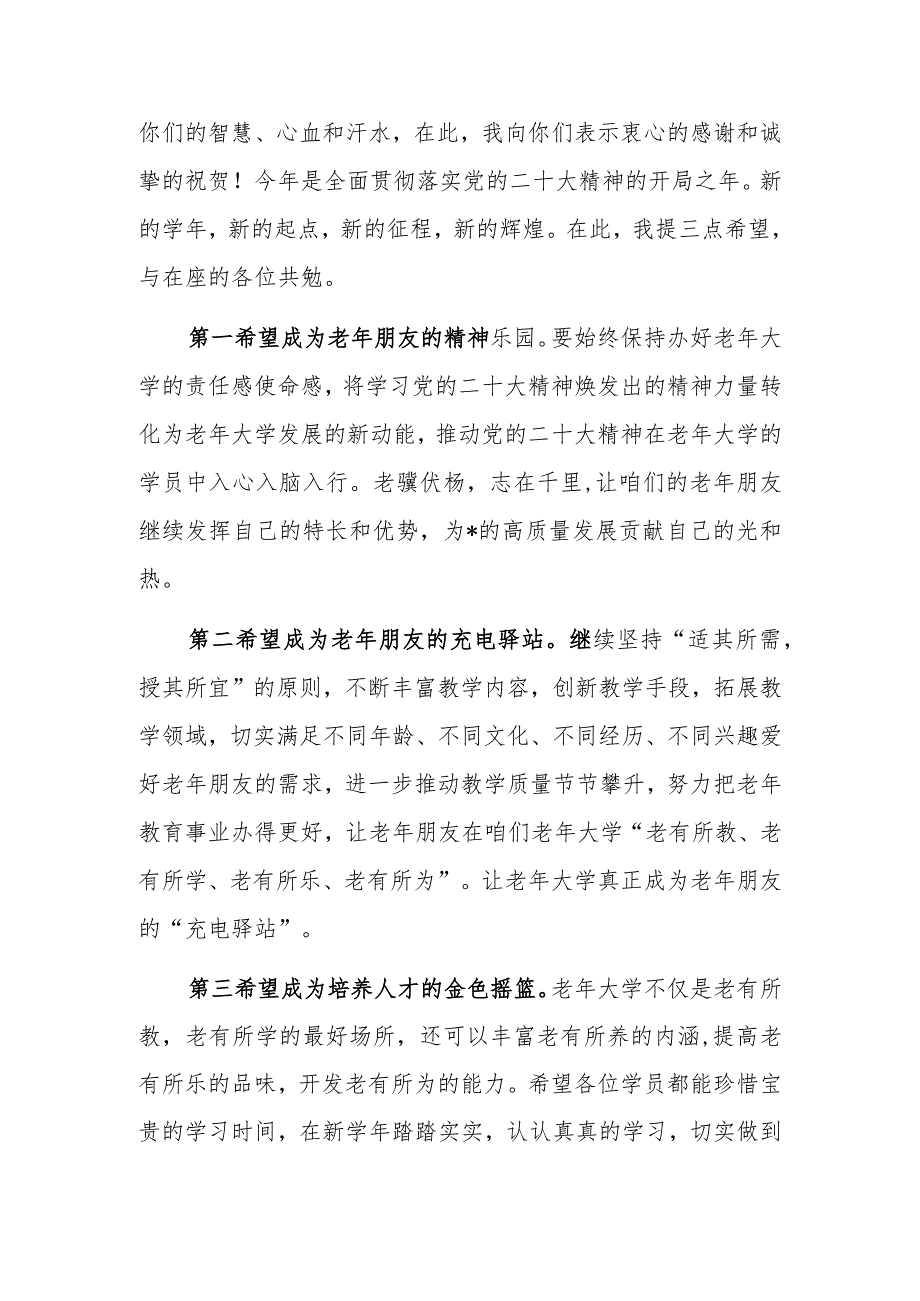 你们的智慧、心血和汗水，在此，我向你们表示衷心的感谢和诚
挚的祝贺！今年是全面贯彻落实党的二十大精神的开局之年。新
的学年，新的起点，新的征程，新的辉煌。在此，我提三点希望，
与在座的各位共勉。
第一希望成为老年朋友的精神乐园。要始终保持办好老年大
学的责任感使命感，将学习党的二十大精神焕发出的精神力量转
化为老年大学发展的新动能，推动党的二十大精神在老年大学的
学员中入心入脑入行。老骥伏杨，志在千里,让咱们的老年朋友
继续发挥自己的特长和优势，为*的高质量发展贡献自己的光和
热。
第二希望成为老年朋友的充电驿站。继续坚持“适其所需，
授其所宜”的原则，不断丰富教学内容，创新教学手段，拓展教
学领域，切实满足不同年龄、不同文化、不同经历、不同兴趣爱
好老年朋友的需求，进一步推动教学质量节节攀升，努力把老年
教育事业办得更好，让老年朋友在咱们老年大学“老有所教、老
有所学、老有所乐、老有所为”。让老年大学真正成为老年朋友
的“充电驿站”。
第三希望成为培养人才的金色摇篮。老年大学不仅是老有所
教，老有所学的最好场所，还可以丰富老有所养的内涵,提高老
有所乐的品味，开发老有所为的能力。希望各位学员都能珍惜宝
贵的学习时间，在新学年踏踏实实，认认真真的学习，切实做到